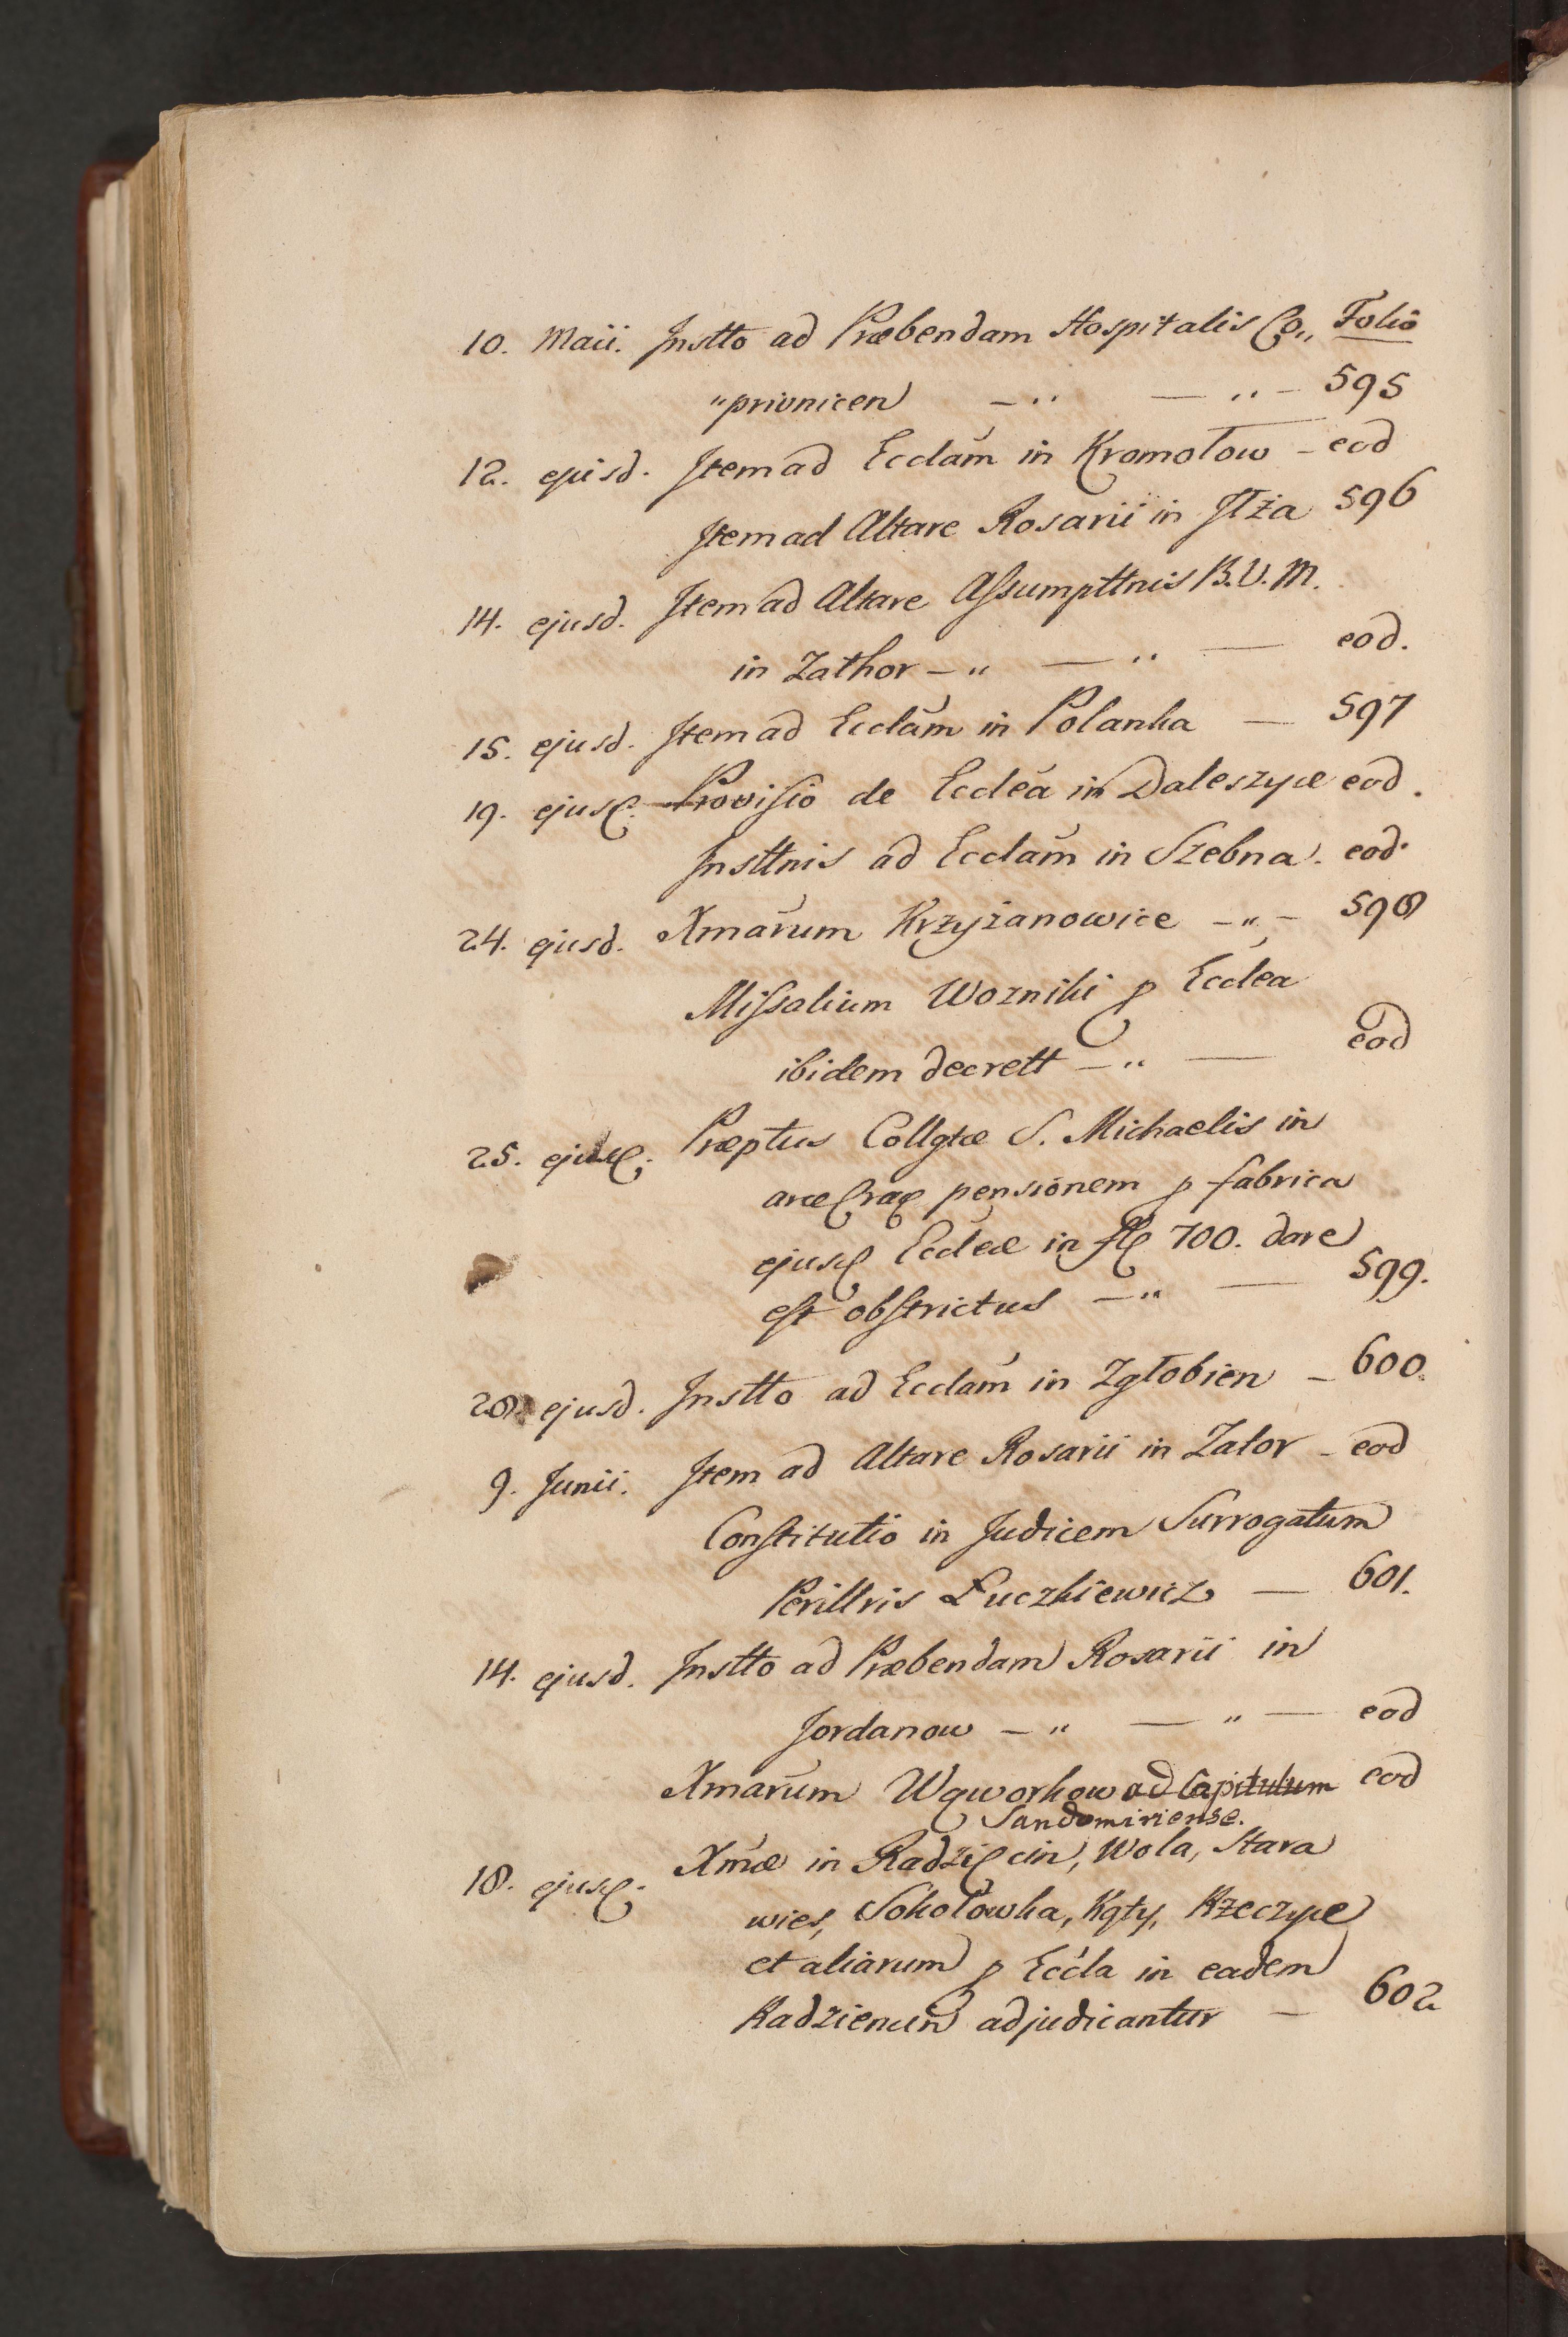 10. Maii. Instto ad Præbendam Hospitalis Co,, Folio
"privnicen — " — " — 595
12. ejusd. Item ad Ecclam in Kromołow — eod
Item ad Altare Rosarii in Iłża 596
14. ejusd. Item ad Altare Assumpttnis B. V. M.
in Zathor — " — " — eod.
15. ejusd. Item ad Ecclam in Polanka — 597
19. ejusd. Provisio de Ecclea in Daleszyce eod.
Insttnis ad Ecclam in Szebna. eod.
24. ejusd. Xmarum Krzyżanowice — " — 598
Missalium Wozniki p Ecclea
ibidem decrett — " — eod
25. ejusd. Præptus Collgtæ S. Michaelis in
arce Crac pensionem p fabrica
ejusd Eccleæ in fl 700. dare
est obstrictus — " — 599.
28. ejusd. Instto ad Ecclam in Zgłobien — 600.
9. Junii. Item ad Altare Rosarii in Zator — eod
Constitutio in Judicem Surrogatum
Perillris Łuczkiewicz — 601.
14. ejusd. Instto ad Præbendam Rosarii in
Jordanow — " — " — eod
Xmarum Wqworkow ad Capitulum eod
Sandomiriense.
18. ejusd. Xmæ in Radzięcin, Wola, Stara
wies, Sokołowka, Kąty, Rzeczyce
et aliarum p Eccla in eadem
Radziencin adjudicantur — 602